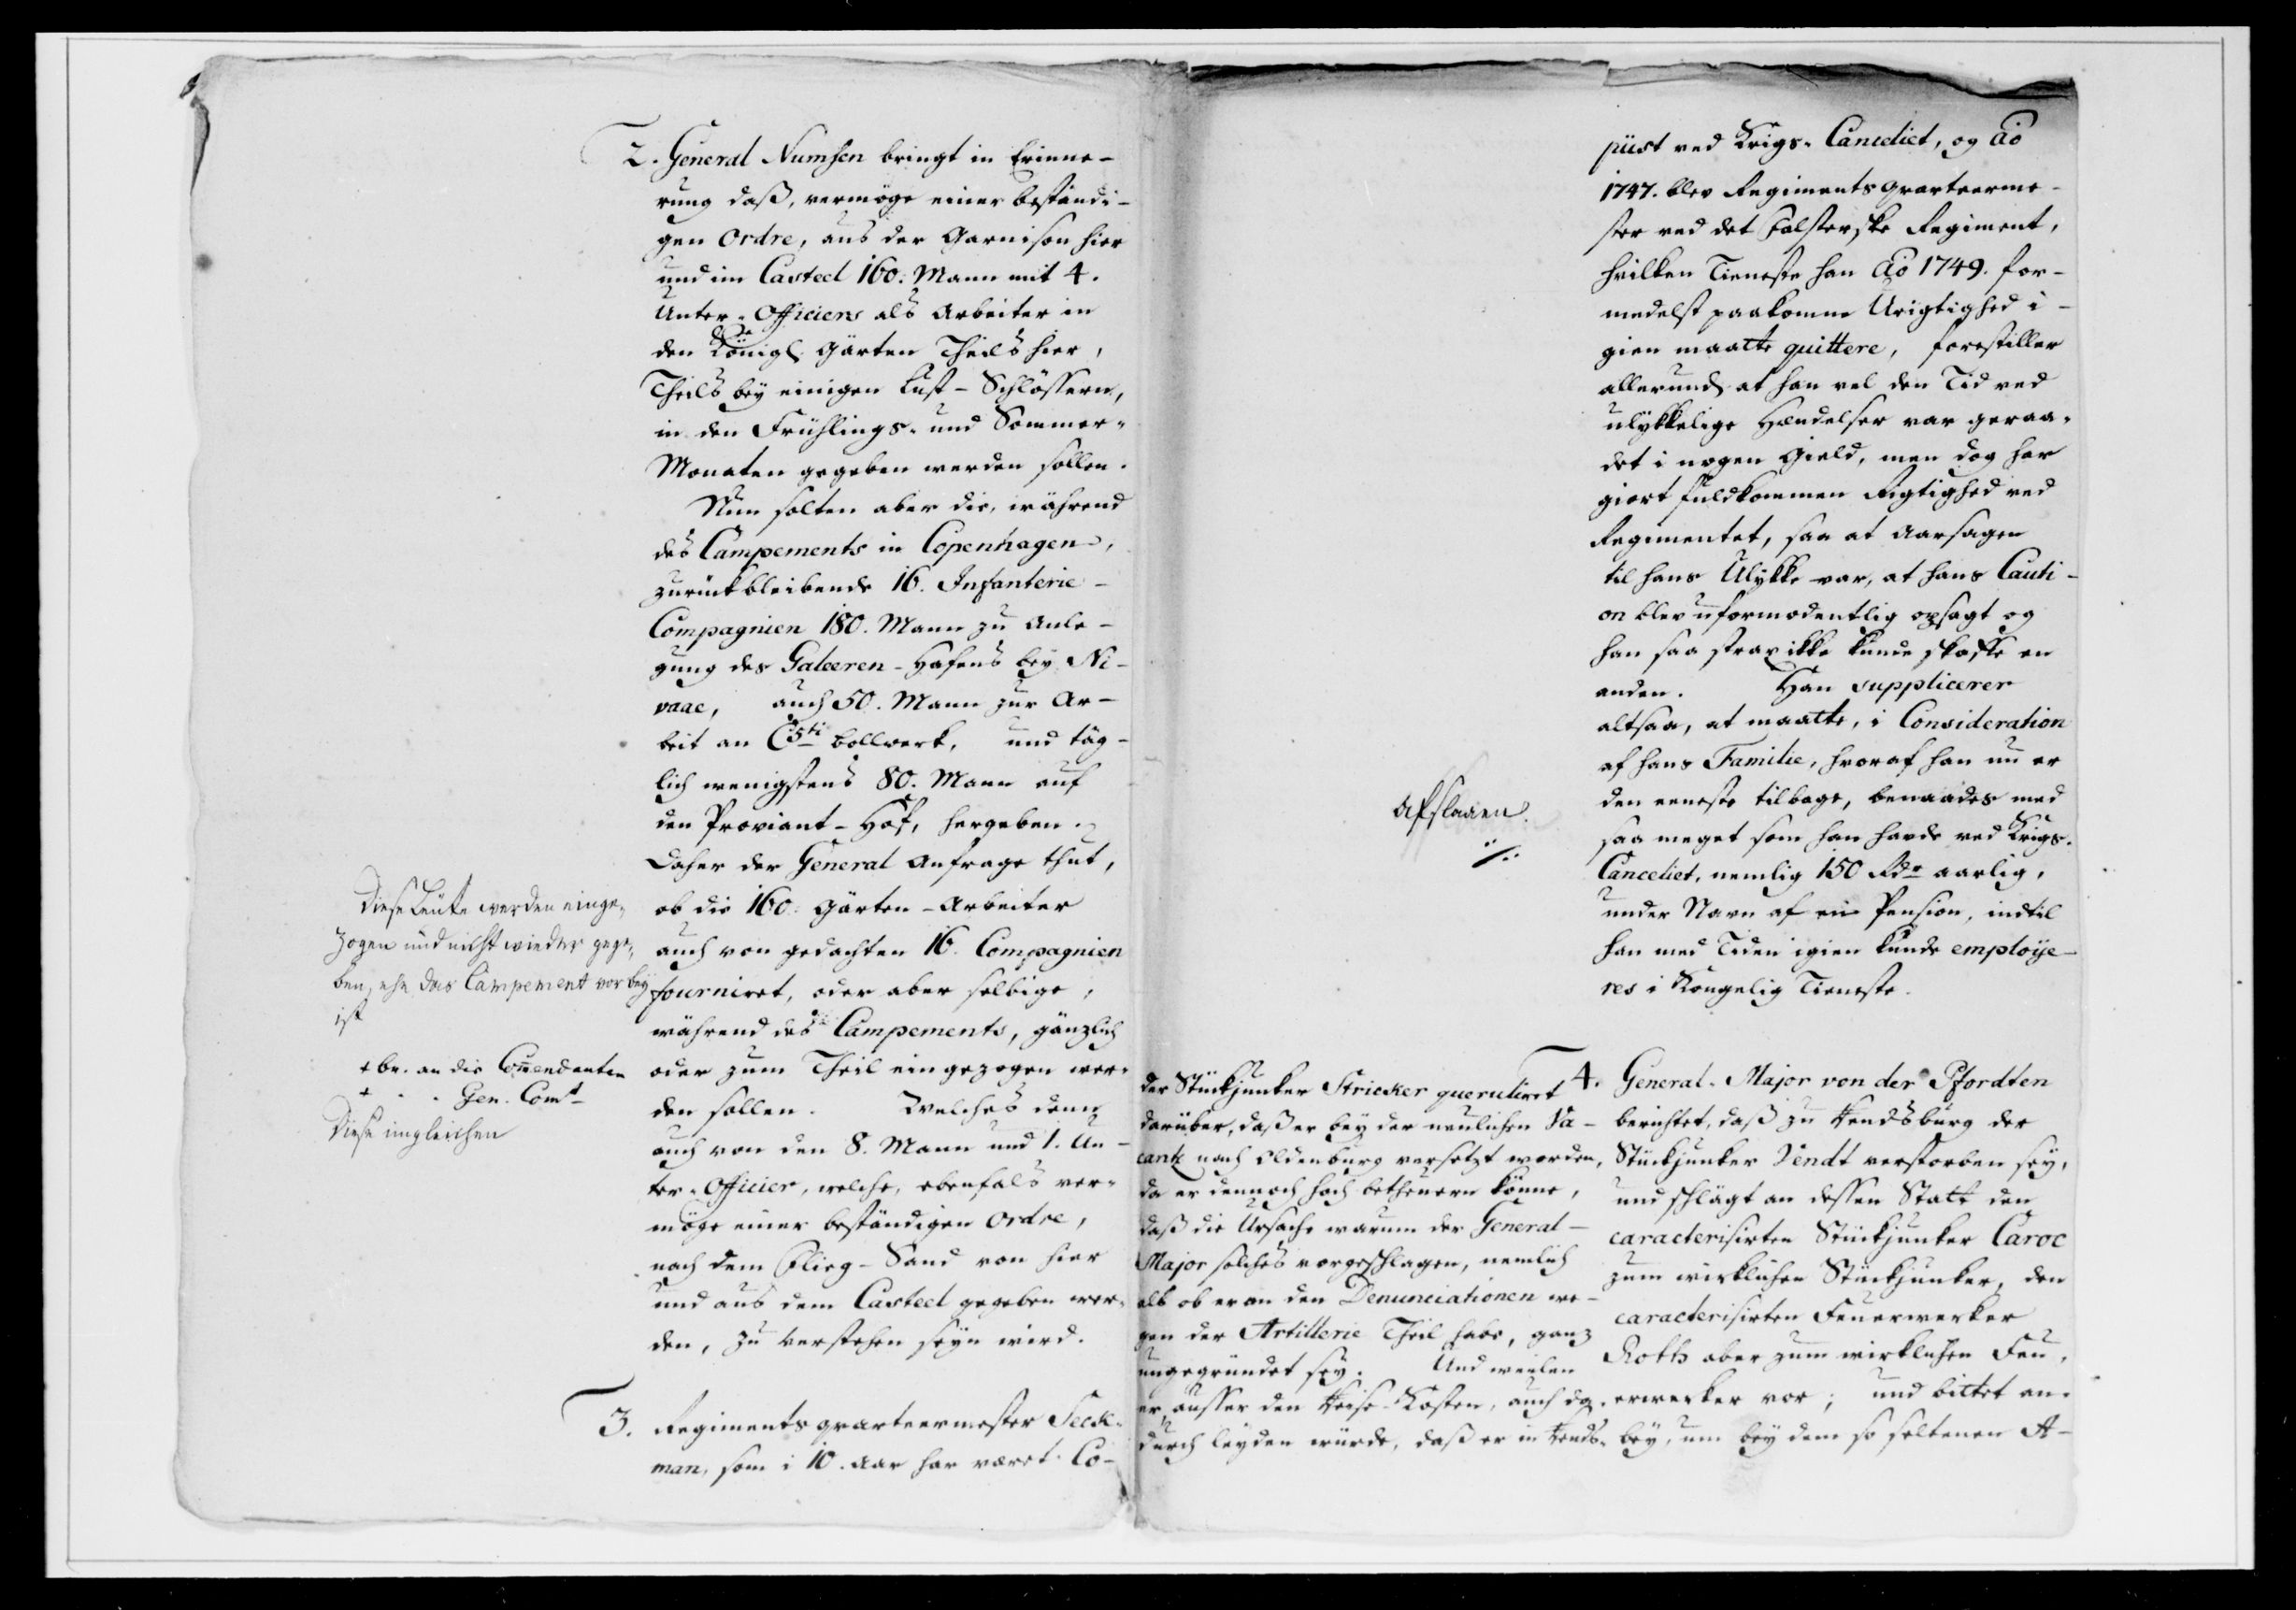 2. General Numsen bringt in Erinne-
rung daß, vermöge einer beständi-
gen Ordre, aus der Garnison hier
und im Casteel 160. Mann mit 4.
Unter-Officiers als Arbeiter in
den Königl. Gärten Theils hier,
Theils bey einigen Lust-Schlössern,
in den Frühlings- und Sommer-
Monaten gegeben werden sollen.
Nun solten aber die, während
des Campements in Copenhagen,
zurückbleibende 16. Infanterie-
Compagnien 180. Mann zu Anle-
gung des Galeeren-Hafens bey Ni-
vaae, auch 50. Mann zur Ar-
beit an C 5ti bollwerk, und täg-
lich wenigstens 80. Mann auf
den Proviant-Hof, hergeben.
Daher der General Anfrage thut,
ob die 160. Gärten-Arbeiter
auch von gedachten 16. Compagnien
fourniret, oder aber selbige,
während des Campements, gänzlich
oder zum Theil eingezogen wer-
den sollen. Welches denn
auch von den 8. Mann und 1. Un-
ter-Officier, welche, ebenfals ver-
möge einer beständigen Ordre,
nach dem Flieg-Sand von hier
und aus dem Casteel gegeben wer-
den, zu verstehen seyn wird.
Diese Leute werden einge-
zogen und nicht wieder gege-
ben, ehe das Campement vorbey
ist
+ br. an die Comendanten
+ - - Gen. Com
Diese imgleichen
3. Regimentsqvarteermester Seek-
man, som i 10. Aar har været Co-
piist ved Krigs-Canceliet, og Ao
1747. blev Regimentsqvarteerme-
ster ved det Falsterske Regiment,
hvilken Tieneste han Ao 1749. for-
medelst paakomne Urigtighed i-
gien maatte quittere, forestiller
allerund. at han vel den Tid ved
ulykkelige Hændelser var geraa-
det i nogen Gield, men dog har
giort fuldkommen Rigtighed ved
Regimentet, saa at Aarsagen
til hans Ulykke var, at hans Cauti-
on blev uformodentlig opsagt og
han saa strax ikke kunde skaffe en
anden. Han supplicerer
altsaa, at maatte, i Consideration
af hans Familie, hvoraf han nu er
den eeneste tilbage, benaades med
saa meget som han havde ved Krigs-
Canceliet, nemlig 150 Rdr aarlig,
under Navn af en Pension, indtil
han med Tiden igien kunde employe-
res i Kongelig Tieneste.
Afslaaen.
4. General-Major von der Pfordten
berichtet, daß zu Rendsburg der
Stückjunker Vendt verstorben sey,
und schlägt an dessen Statt den
caracterisirten Stückjunker Caroc
zum wirklichen Stückjunker, den
caracterisirten Feuerwerker
Roth aber zum wirklichen Feu-
erwerker vor; und bittet an-
bey, um bey dem so seltenen A-
der Stückjunker Stricker queruliret
darüber, daß er bey der neulichen Va-
cantz nach Oldenburg versetzt worden,
da er dennoch hoch betheuern könne,
daß die Ursache warum der General-
Major solches vorgeschlagen, nemlich
als ob er an den Denunciationen we-
gen der Artillerie Theil habe, ganz
ungegründet sey. Und weilen
er, ausser den Reise-Kosten, auch da-
durch leyden würde, daß er in Rends-